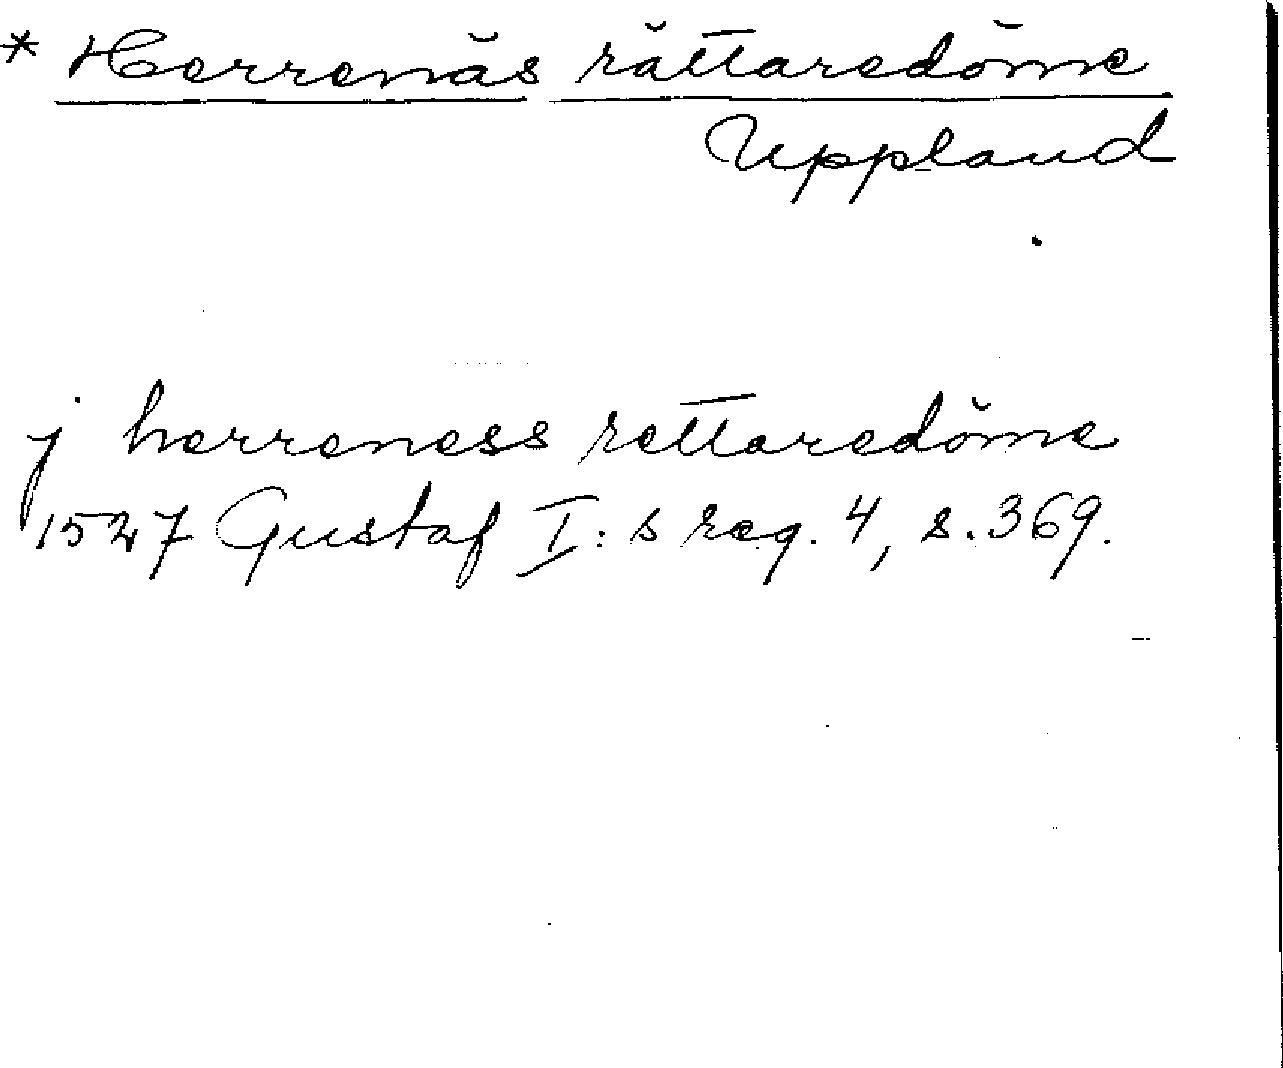 * Herrenäs rättaredöme
Uppland
j herreness rettaredöme
1527 Gustaf I:s reg. 4, s. 369.